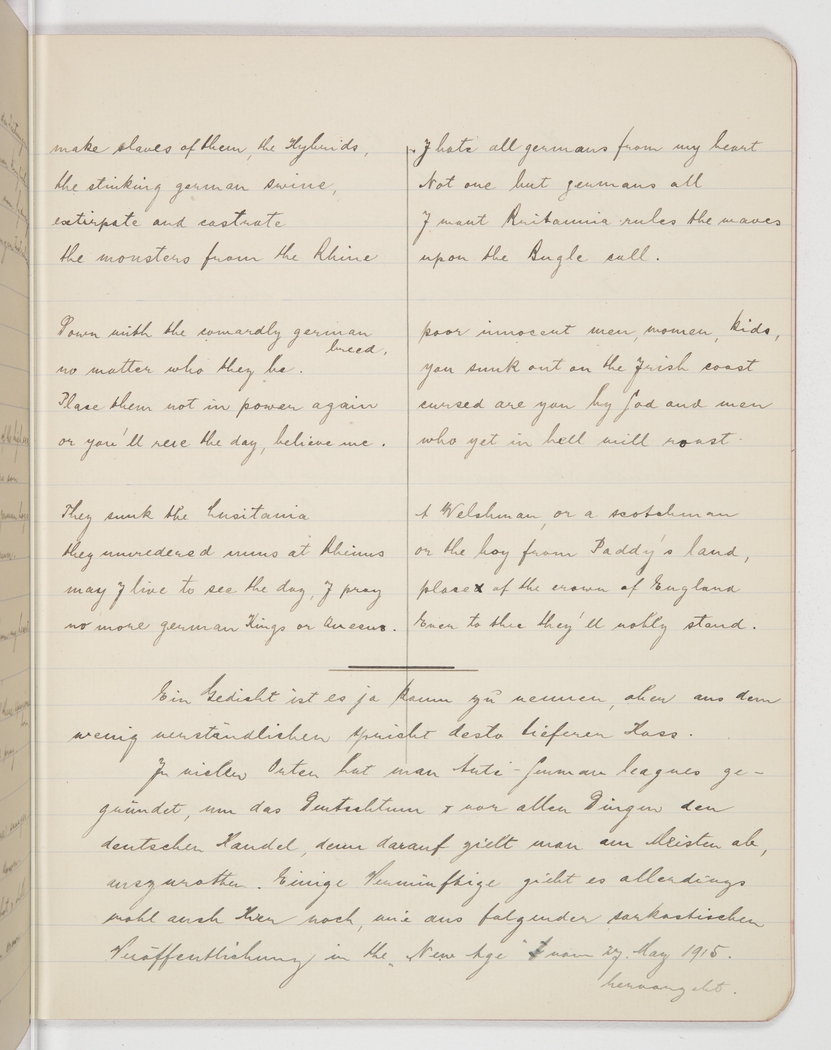 make slaves of them, the Hybrids,
the stinking german swine,
extirpate and castrate
the monsters from the Rhine
Down with the cowardly german
breed.
no matter who they be.
Place them not in power again
or you'll rue the day, believe me.
They sunk the Lusitania
they murdered nuns at Rheims
may I live to see the day, I pray
no more german Kings or
I hate all germans from my heart
Not one but germans all
I want Britannia rules the waves
upon the Bugle call.
poor innocent men, women, kids,
you sunk out on the Irish coast
cursed are you by God and men
who yet in hell will roast
A Welshman, or a scotchman
or the boy from Paddy's land,
place of the crown of England
Even to thee they'll nobly stand.
Ein Gedicht ist es ja kaum zu nennen, aber aus dem
wenig verständlichen spricht desto tieferer Hass.
In vielen Orten hat man Anti-German leagues ge-
gründet, um das Deutschtum & vor allen Dingen den
deutschen Handel, denn darauf zielt man am Meisten ab,
auszurotten. Einige Vernünftige giebt es allerdings
wohl auch hier noch, wie aus folgender sarkastischen
Veröffentlichung in the "New Age" vom 27. May 1915.
hervorgeht.